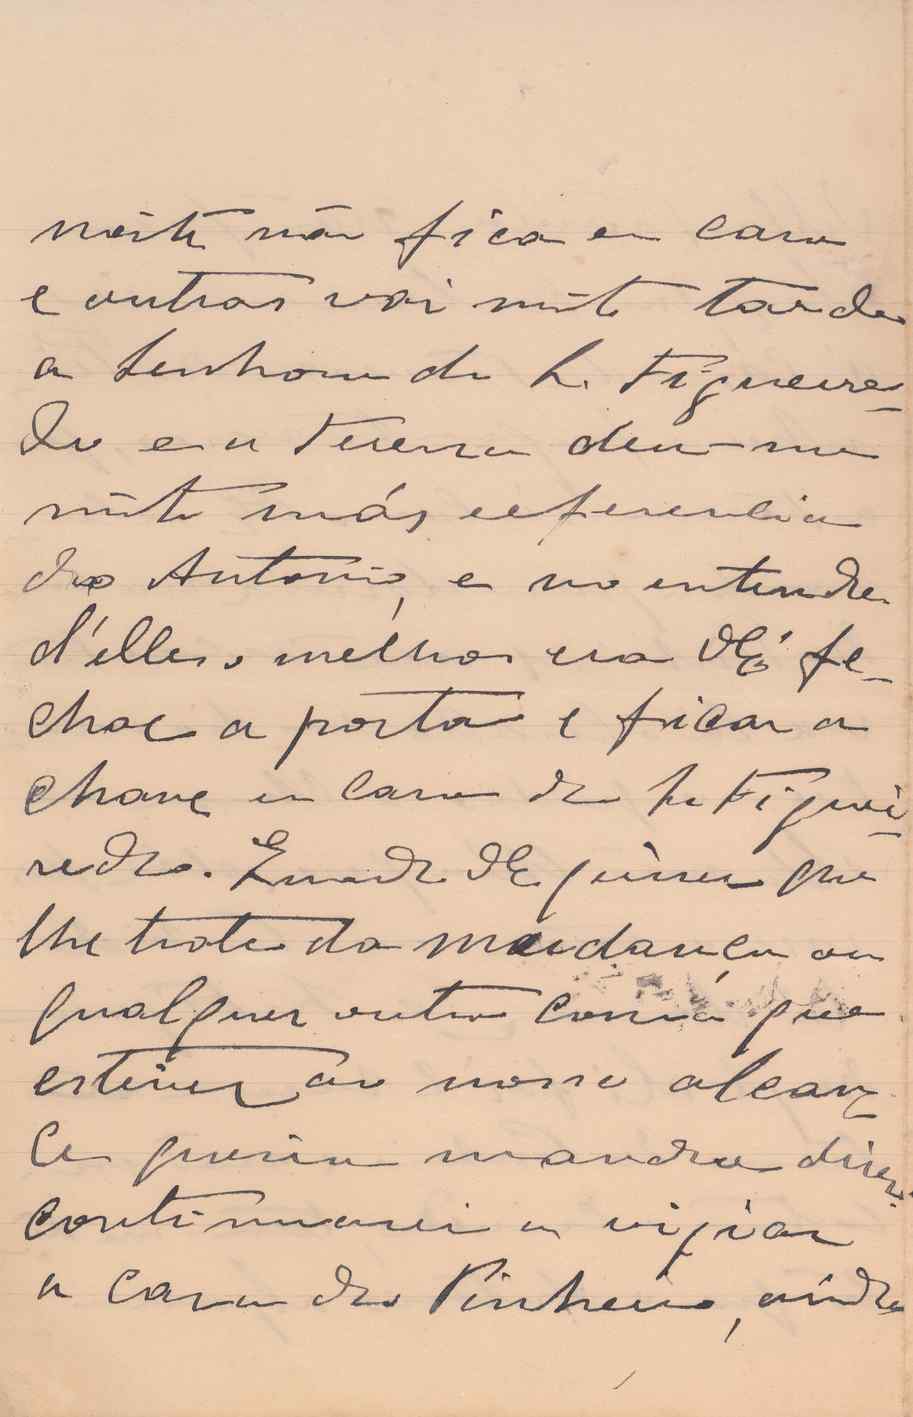 noite não fica em casa
e outras vai muito tarde
a Senhora do Sr. Figueire-
do e a Tereza deu-me
muito más referencia
do Antonio, e no entender
d'elles o melhor era fe-
char a porta e ficar a
chave em casa do Sr Figuei-
redo. queira que
lhe trate da mudança ou
qualquer outra cousa que
estiver ao nosso alcan-
ce queira mandar dizer.
continuarei a vigiar
a casa do Pinheiro, ainda